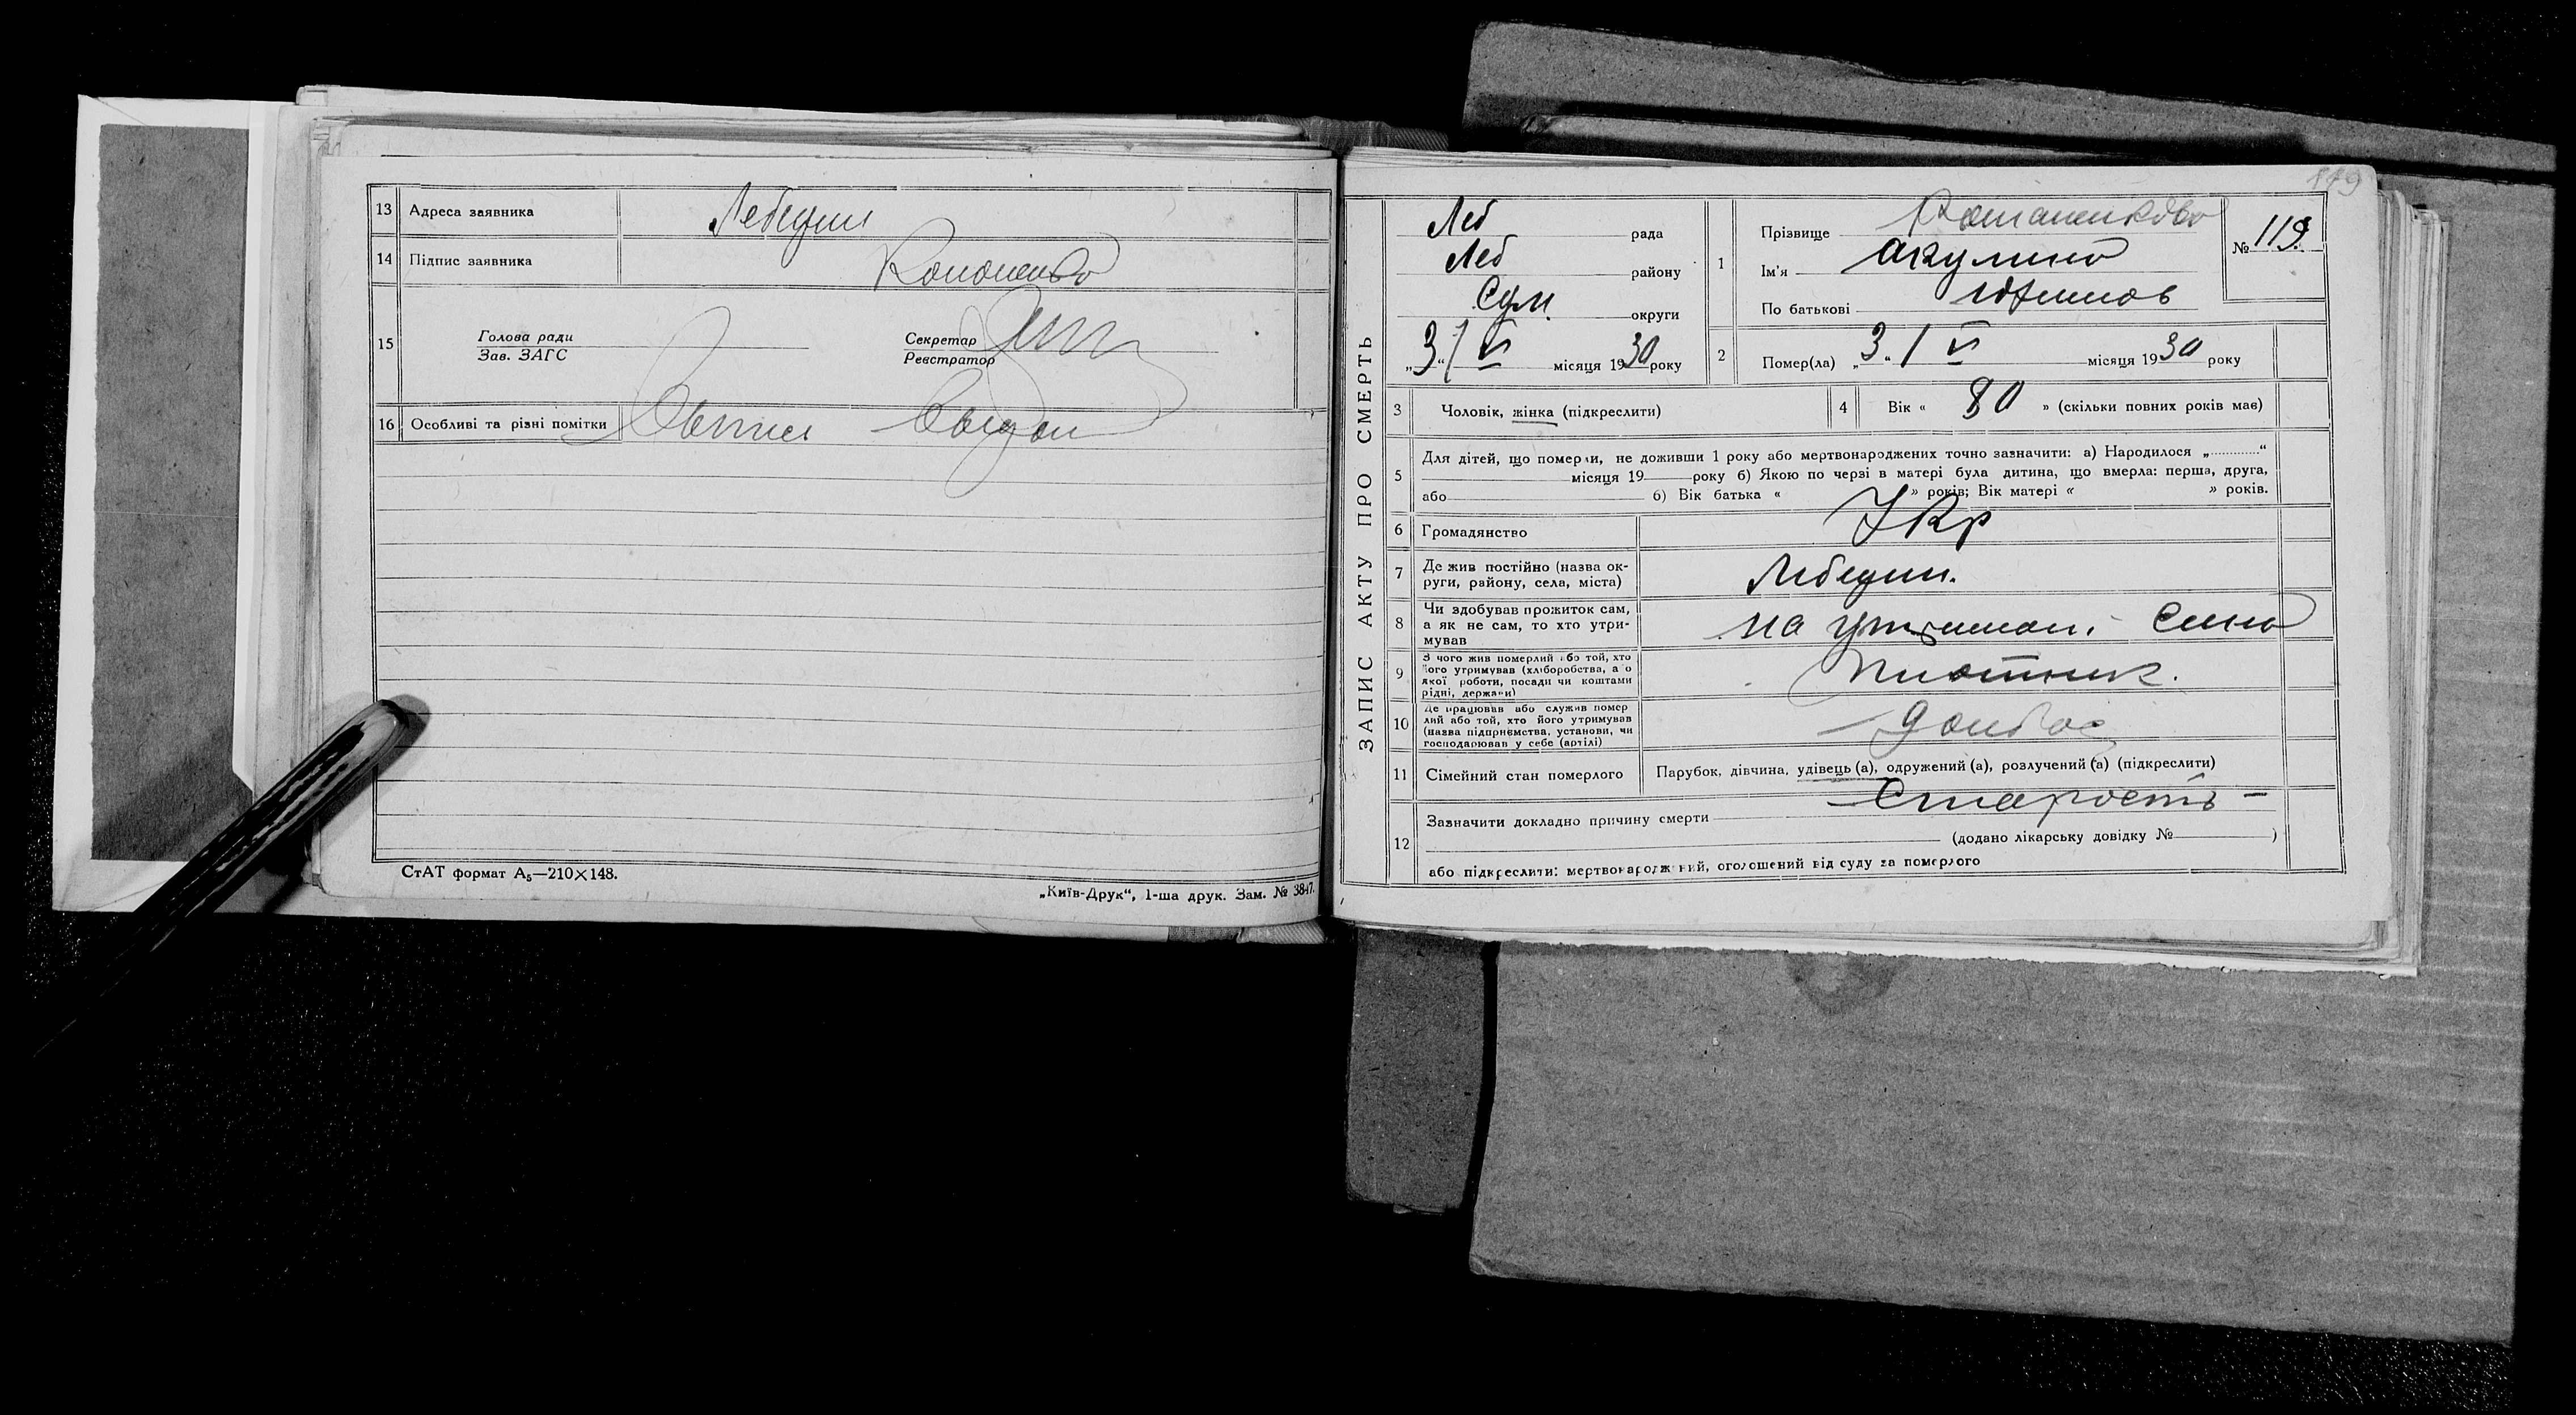 13 Адреса заявника Лебедин
14 Підпис заявника Кононенко
15 Голова ради
Зав. ЗАГС
Секретар
Реєстратор
16 Особливі та різні помітки
СтАТ формат А5—210×148.
„Київ-Друк“, 1-ша друк. Зам. № 3847.
179
ЗАПИС АКТУ ПРО СМЕРТЬ
Леб рада
Леб району
Сум. округи
„3“/VI місяця 1930 року
1 Прізвище
Ім'я Акулина
По батькові
№ 119.
2 Помер(ла) „3“/VI місяця 1930 року
3 Чоловік, жінка (підкреслити)
4 Вік « 80 » (скільки повних років має)
5 Для дітей, що померли, не доживши 1 року або мертвонароджених точно зазначити: а) Народилося „ “
місяця 19 року б) Якою по черзі в матері була дитина, що вмерла: перша, друга,
або б) Вік батька « » років; Вік матері « » років.
6 Громадянство Укр
7 Де жив постійно (назва округи, району, села, міста) Лебедин.
8 Чи здобував прожиток сам,
а як не сам, то хто утримував на утримані сина
9 З чого жив померлий або той, хто
його утримував (хліборобства, а о
якої роботи, посади чи коштами
рідні, держави) Плотник.
10 Де працював або служив помер
лий або той, хто його утримував
(назва підприємства, установи, чи
господарював у себе (артілі) Донбас
11 Сімейний стан померлого Парубок, дівчина, удівець (а), одружений (а), розлучений (а) (підкреслити)
12 Зазначити докладно причину смерти Старость –
(додано лікарську довідку № )
або підкреслити: мертвонароджений, оголошений від суду за померлого